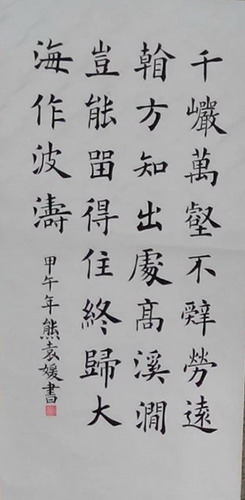 千巖萬壑不辤勞遠
翰方知出處高溪澗
豈能畱得住終歸大
海作波濤
甲午年熊袁媛書